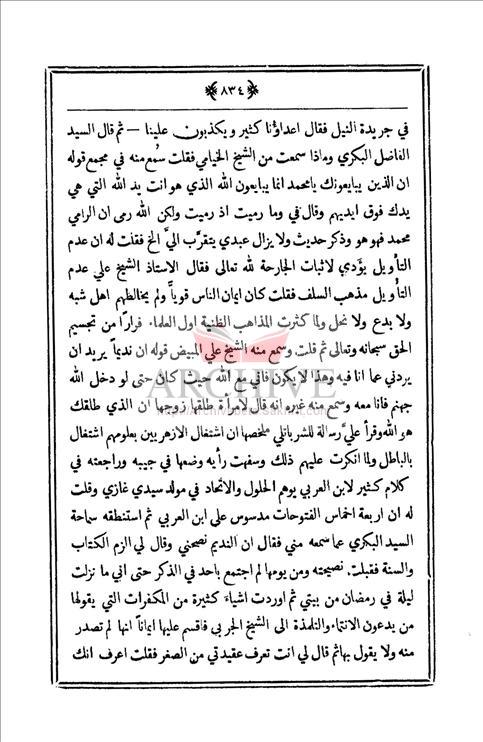 ٨٣٤
في جريدة النيل فقال اعداؤنا كثير ويكذبون علينا — ثم قال السيد
الفاضل البكري وماذا سمعت من الشيخ الخيامي فقلت سُمع منه في مجمع قوله
ان الذين يبايعونك يا محمد انما يبايعون الله الذي هو انت يد الله التي هي
يدك فوق ايديهم وقال في وما رميت اذ رميت ولكن الله رمى ان الرامي
محمد فهو هو وذكر حديث ولا يزال عبدي يتقرّب اليَّ الخ فقلت له ان عدم
التأويل يؤدي لاثبات الجارحة لله تعالى فقال الاستاذ الشيخ علي عدم
التأويل مذهب السلف فقلت كان ايمان الناس قوياً ولم يخالطهم اهل شبه
ولا بدع ولا نحل ولما كثرت المذاهب الظنية اول العلماء فرارًا من تجسيم
الحق سبحانه وتعالى ثم قلت وسمع منه الشيخ علي المبيض قوله ان نديماً يريد ان
يردني عما انا فيه وهذا لا يكون فاني مع الله حيث كان حتى لو دخل الله
جهنم فانا معه وسمع منه غيره انه قال لامرأة طلقها زوجها ان الذي طلقك
هو الله وقرأ عليَّ رسالة للشرباتلي ملخصها ان اشتغال الازهريين بعلومهم اشتغال
بالباطل ولما انكرت عليهم ذلك وسفهت رأيه وضعها في جيبه وراجعته في
كلام كثير لابن العربي يوهم الحلول والاتحاد في مولد سيدي غازي وقلت
له ان اربعة اخماس الفتوحات مدسوس على ابن العربي ثم استنطقه سماحة
السيد البكري عما سمعه مني فقال ان النديم نصحني وقال لي الزم الكتاب
والسنة فقبلت نصيحته ومن يومها لم اجتمع باحد في الذكر حتى اني ما نزلت
ليلة في رمضان من بيتي ثم اوردت اشياء كثيرة من المكفرات التي يقولها
من يدعون الانتماء والتلمذة الى الشيخ الجربي فاقسم عليها ايماناً انها لم تصدر
منه ولا يقول بها ثم قال لي انت تعرف عقيدتي من الصغر فقلت اعرف انك
ARCHIVE